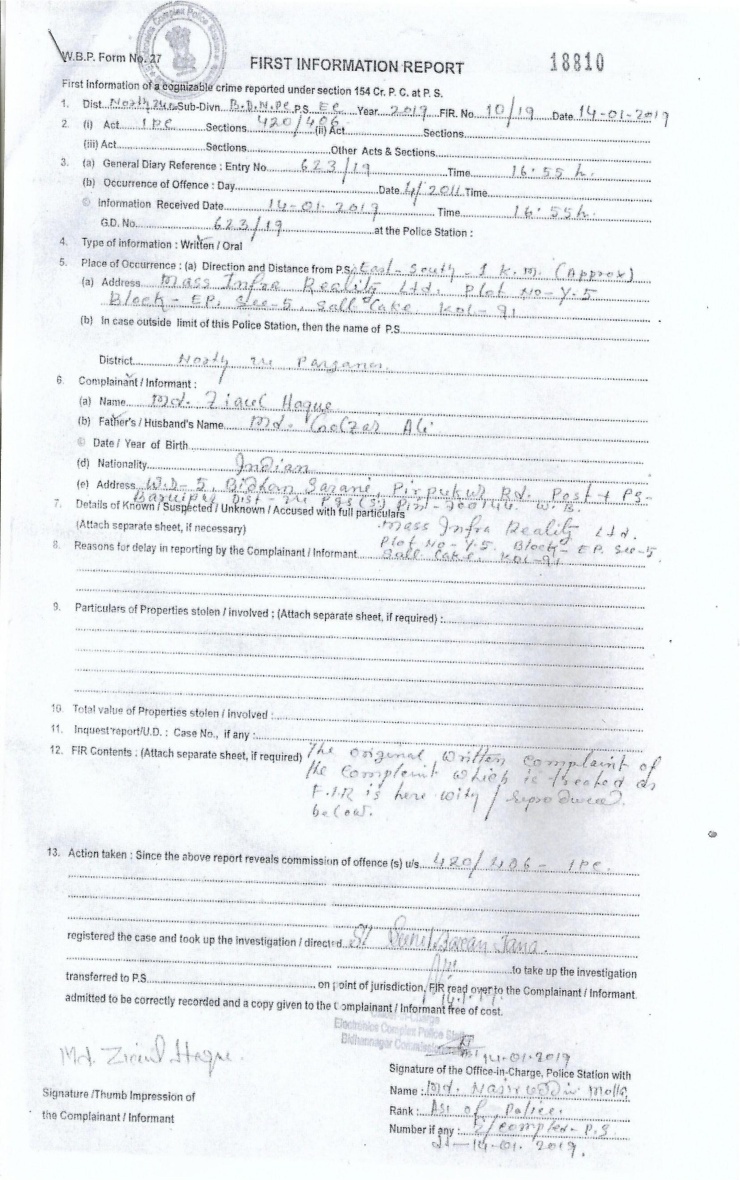 W.B.P. Form No. 27
FIRST INFORMATION REPORT
18810
First information of a cognizable crime reported under section 154 Cr. P. C. at P. S.
1. Dist. North 24 Sub-Divn. B.D.N.PC P.S. EC Year 2019 FIR. No. 10/19 Date 14-01-2019
2. (i) Act IPC Sections 420/406 (ii) Act Sections
(iii) Act Sections Other Acts & Sections
3. (a) General Diary Reference : Entry No 623/19 Time 16:55 h.
(b) Occurrence of Offence : Day Date 4/2011 Time
Information Received Date 14-01-2019 Time 16:55h.
G.D. No. 623/19 at the Police Station :
4. Type of information : Written / Oral
5. Place of Occurrence : (a) Direction and Distance from P.S. East-South-1 K.M. (Approx)
(a) Address Mass Infra Reality Ltd. Plot No-Y-5
Block-EP, Sec-5, Salt Cake KOL-91
(b) In case outside limit of this Police Station, then the name of P.S.
District North Parganas
6. Complainant / Informant :
(a) Name Md. Ziaul Haque
(b) Father's / Husband's Name Md. Golzar Ali
Date / Year of Birth
(d) Nationality Indian
(e) Address W.D-5, Bidhan Sarani, Pirpukur Rd. Post + PS-
Baruipur Dist- Pgs(S) Pin-700144. W.B.
7. Details of Known / Suspected / Unknown / Accused with full particulars
(Attach separate sheet, if necessary) Mass Infra Reality Ltd.
Plot No-Y-5. Block-EP. Sec-5
8. Reasons for delay in reporting by the Complainant / Informant Salt Cake. KOL-91
9. Particulars of Properties stolen / involved : (Attach separate sheet, if required) :
10. Total value of Properties stolen / involved :
11. Inquest report/U.D. : Case No., if any :
12. FIR Contents : (Attach separate sheet, if required) The original written complaint of
the complaint which is treated as
F.I.R is here with / reproduced.
below.
13. Action taken : Since the above report reveals commission of offence (s) u/s 420/406-IPC.
registered the case and took up the investigation / directed SI Jana.
to take up the investigation
transferred to P.S. on point of jurisdiction, FIR read over to the Complainant / Informant.
admitted to be correctly recorded and a copy given to the Complainant / Informant free of cost.
Electronics Complex Police
Bidhannagar
Md. Ziaul Haque.
14-01-2019
Signature of the Office-in-Charge, Police Station with
Signature /Thumb Impression of
the Complainant / Informant
Name : Md. Nasiruddin Molla
Rank : ASI of Police
Number if any : E/complex-P.S
14-01-2019.